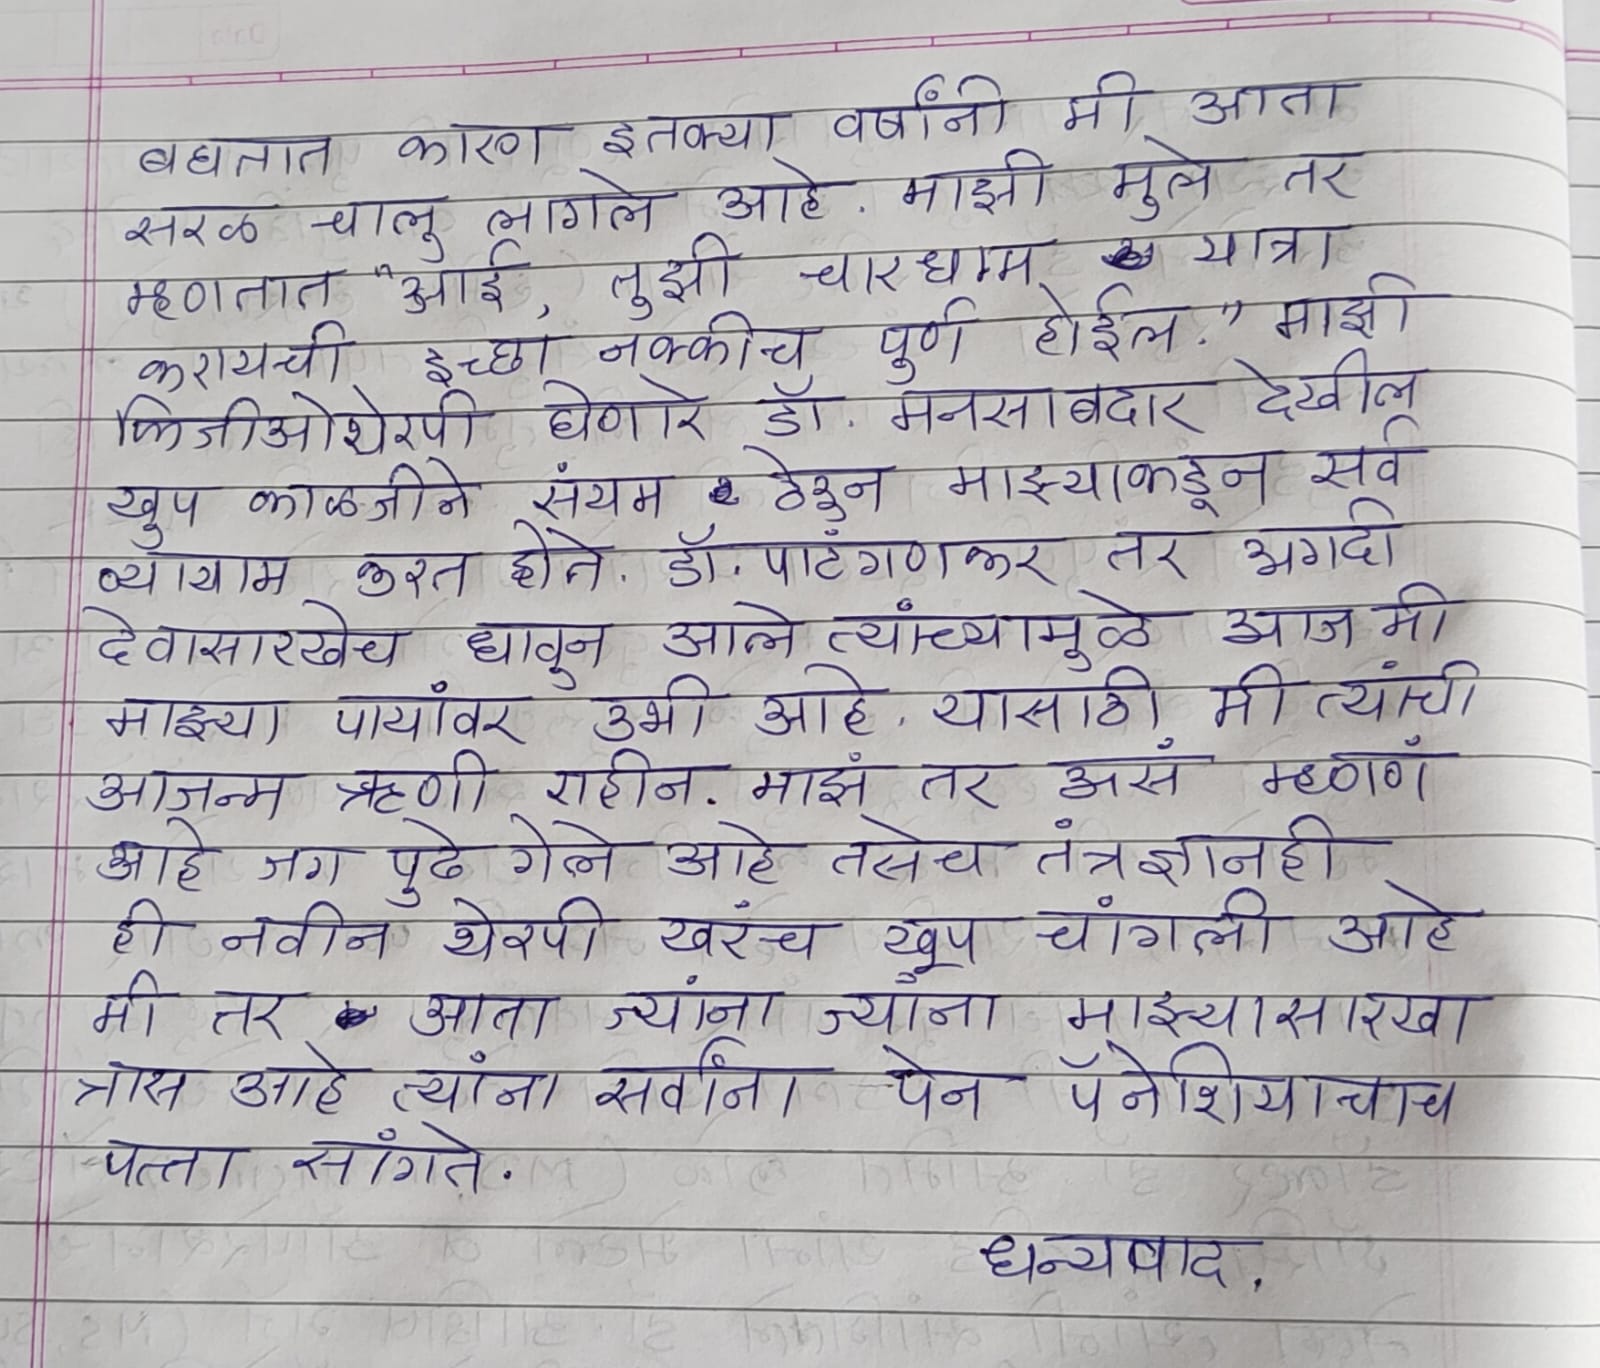 बघतात कारण इतक्या वर्षांनी मी आता
सरळ चालु लागले आहे. माझी मुले तर
म्हणतात "आई, तुझी चारधाम यात्रा
करायची इच्छा नक्कीच पुर्ण होईल." माझी
फिजीओथेरपी घेणारे डॉ. मनसाबदार देखील
खुप काळजीने संयम ठेवुन माझ्याकडून सर्व
व्यायाम करत होते. डॉ. पाटंगणकर तर अगदी
देवासारखेच धावुन आले त्यांच्यामुळे आज मी
माझ्या पायांवर उभी आहे. यासाठी मी त्यांची
आजन्म ऋणी राहीन. माझं तर असं म्हणणं
आहे जग पुढे गेले आहे तसेच तंत्रज्ञानही
ही नवीन थेरपी खरंच खूप चांगली आहे
मी तर आता ज्यांना ज्यांना माझ्यासारखा
त्रास आहे त्यांना सर्वांना पेन पॅनेशियाचाच
पत्ता सांगते.
धन्यवाद.